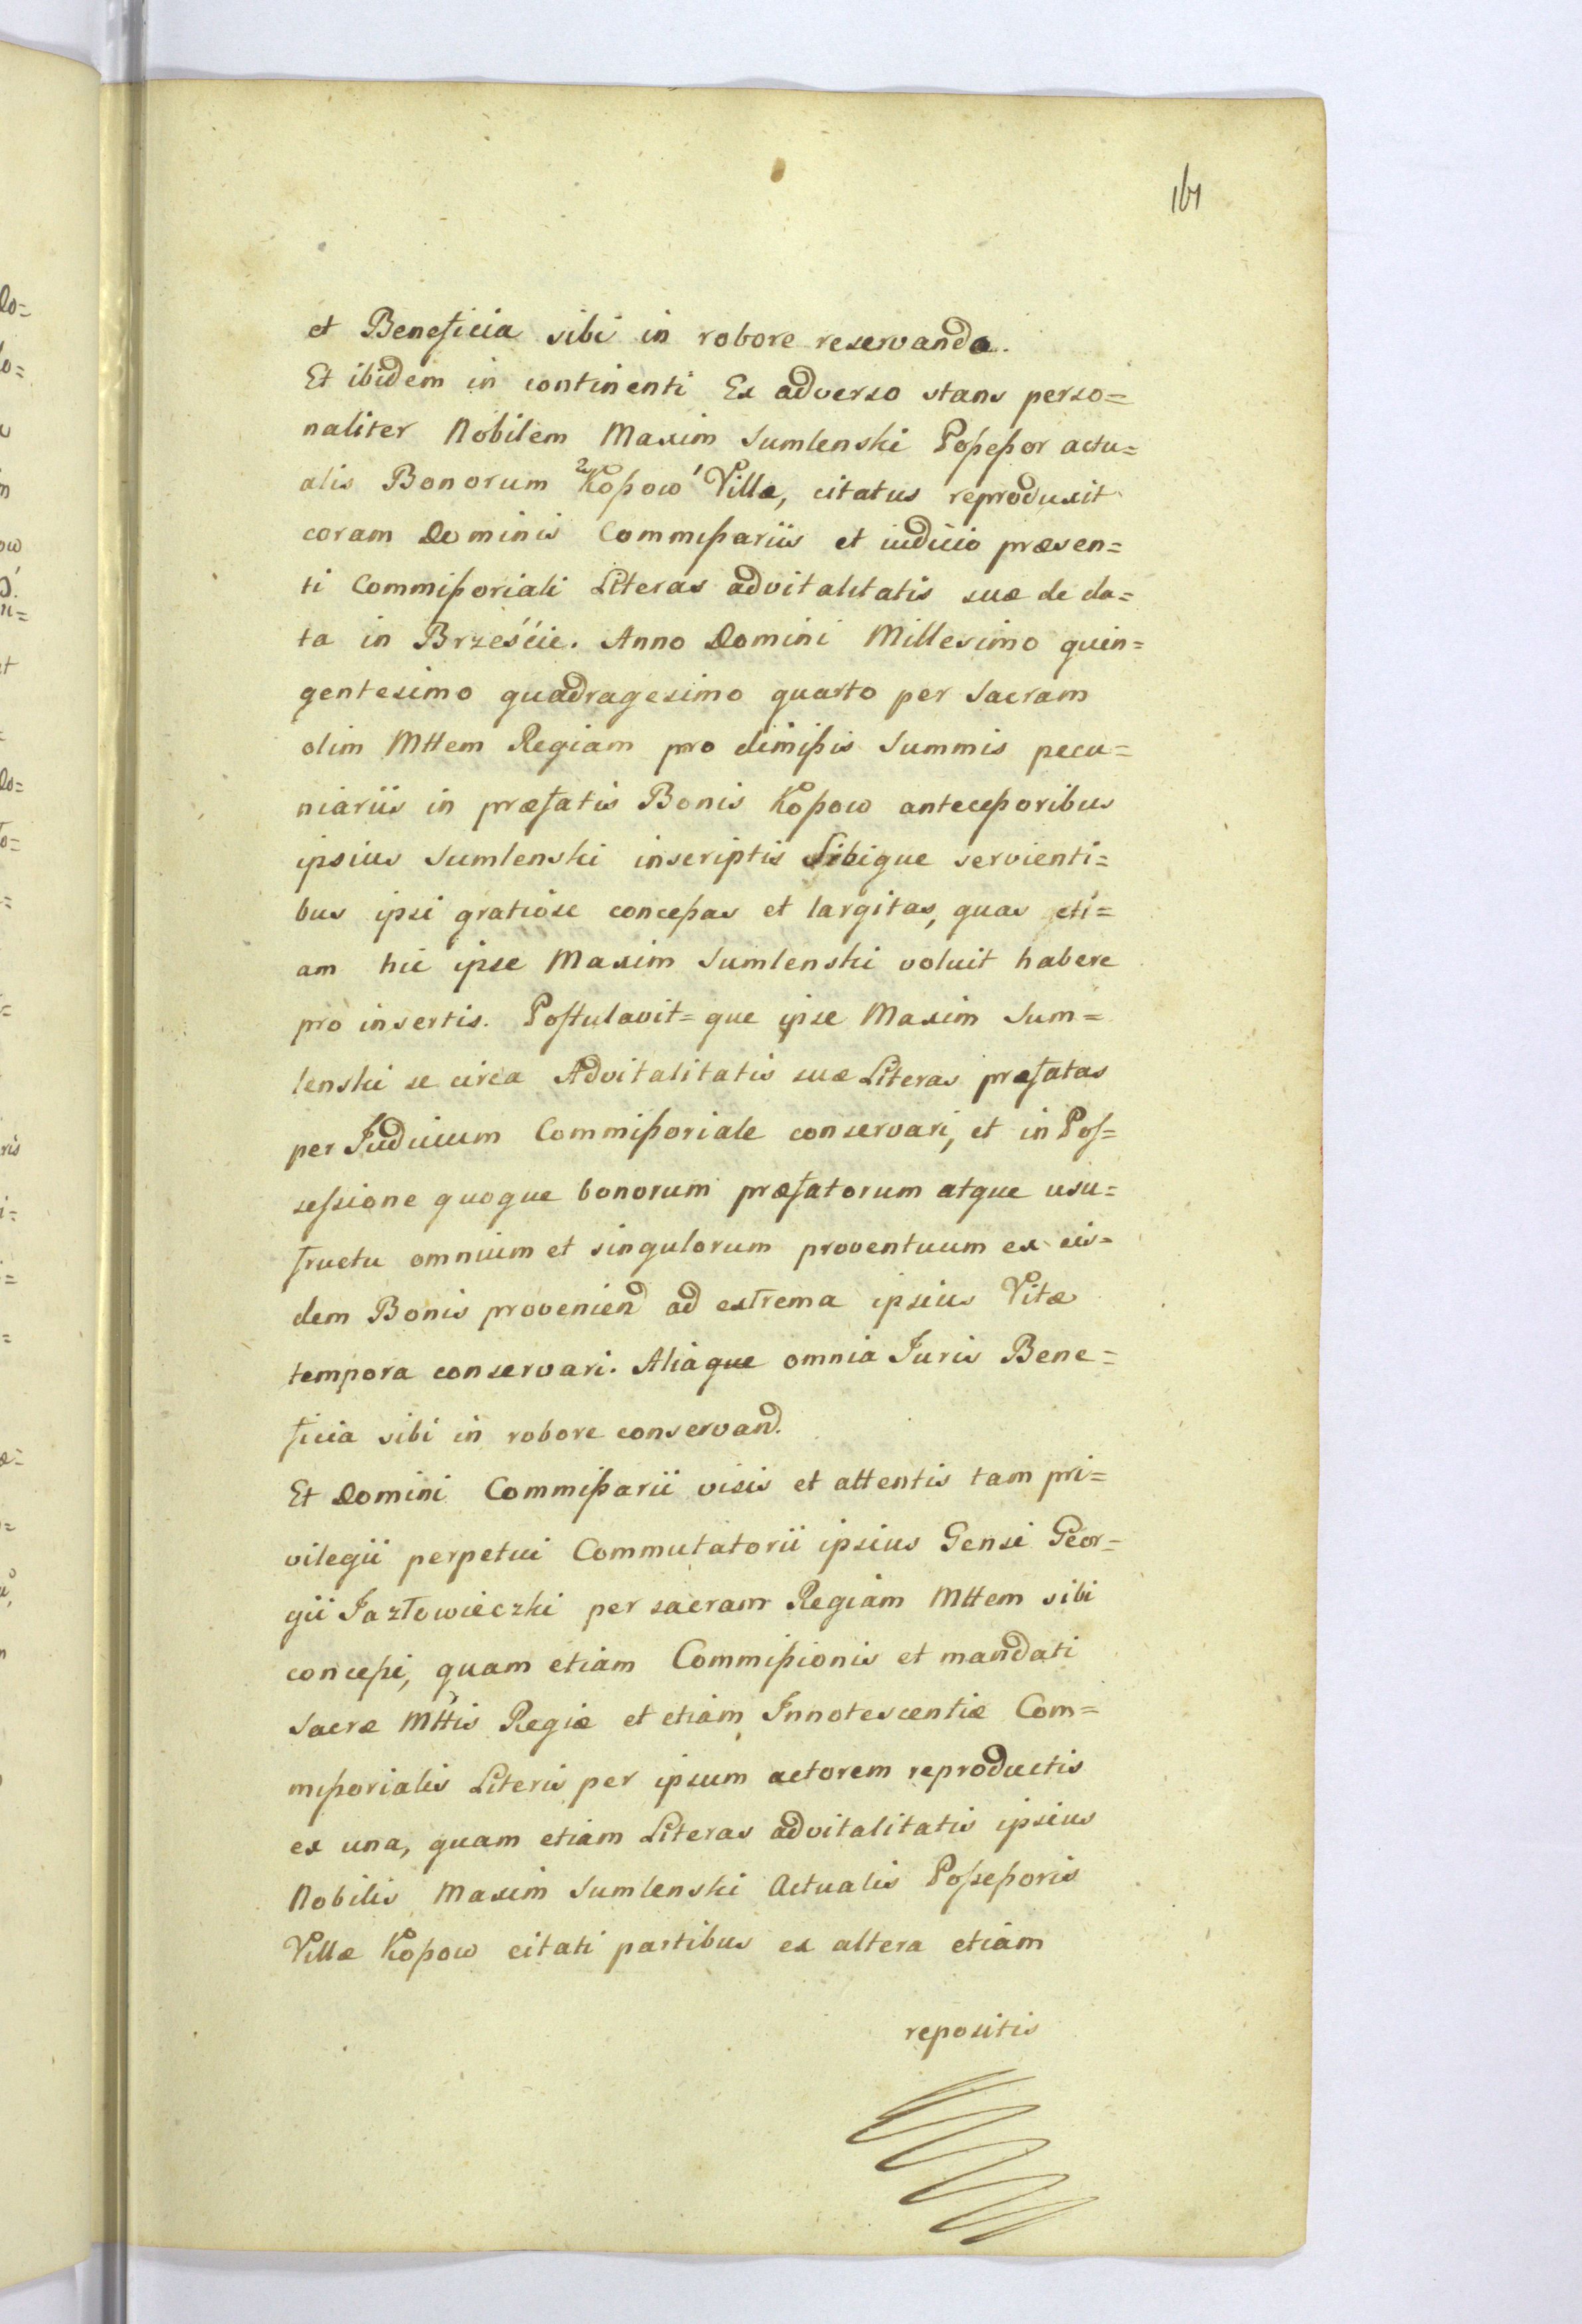 161
et Beneficia sibi in robore reservanda.
Et ibidem in continenti Ex adverso stans perso=
naliter Nobilem Maxim Sumlenski Possessor actu=
alis Bonorum ²Kossow ¹Villæ, citatus reproduxit
coram Dominis Commissariis et iudicio præsen=
ti Commissoriali Literas advitalitatis suæ de da=
ta in Brześćie. Anno Domini Millesimo quin=
gentesimo quadragesimo quarto per Sacram
olim Mttem Regiam pro dimissis Summis pecu=
niariis in præfatis Bonis Kossow antecessoribus
ipsius Sumlenski inscriptis Sibique servienti=
bus ipsi gratiose concessas et largitas, quas eti=
am hic ipse Maxim Sumlenski voluit habere
pro insertis. Postulavit=que ipse Maxim Sum=
lenski se circa Advitalitatis suæ Literas præfatas
per Judicium Commissoriale conservari, et in Pos=
sessione quoque bonorum præfatorum atque usu=
fructu omnium et singulorum proventuum ex eis=
dem Bonis provenien̄d ad extrema ipsius Vitæ
tempora conservari. Aliaque omnia Juris Bene=
ficia sibi in robore conservand.
Et Domini Commissarii visis et attentis tam pri=
vilegii perpetui Commutatorii ipsius Gensi Geor=
gii Jazłowieczki per sacram Regiam Mttem sibi
concessi, quam etiam Commissionis et mandati
Sacræ Mttis Regiæ et etiam Innotescentiæ Com=
missorialis Literis per ipsum actorem reproductis
ex una, quam etiam Literas advitalitatis ipsius
Nobilis Maxim Sumlenski Actualis Possessoris
Villæ Kossow citati partibus ex altera etiam
repositis